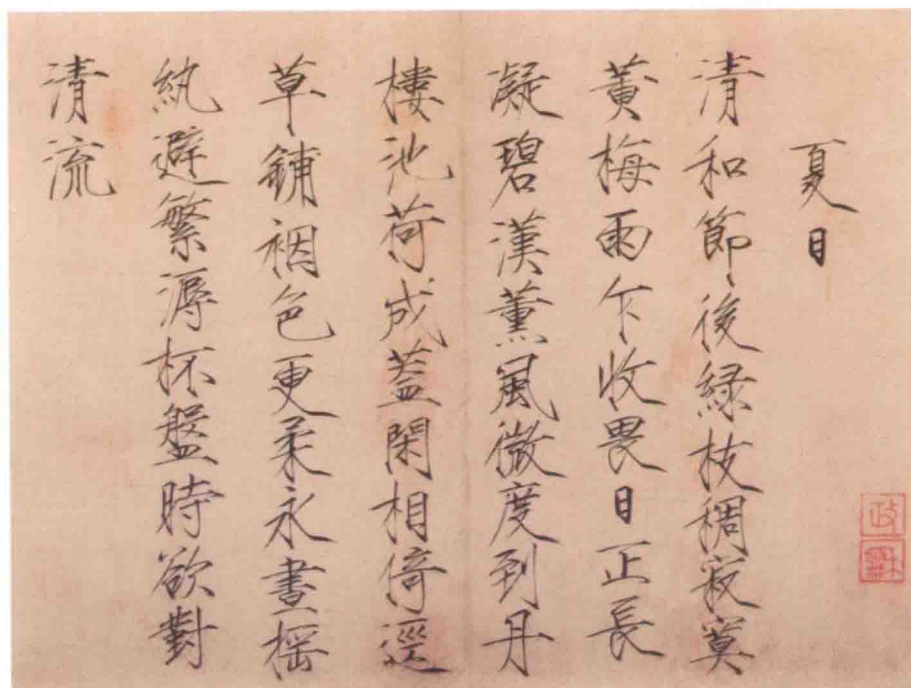 夏日
清和節後緑枝稠寂寞
黄梅雨乍收畏日正長
凝碧漢薰風微度到丹
樓池荷成蓋閑相倚逕
草鋪裀色更柔永晝揺
紈避繁溽杯盤時欲對
清流
政龢